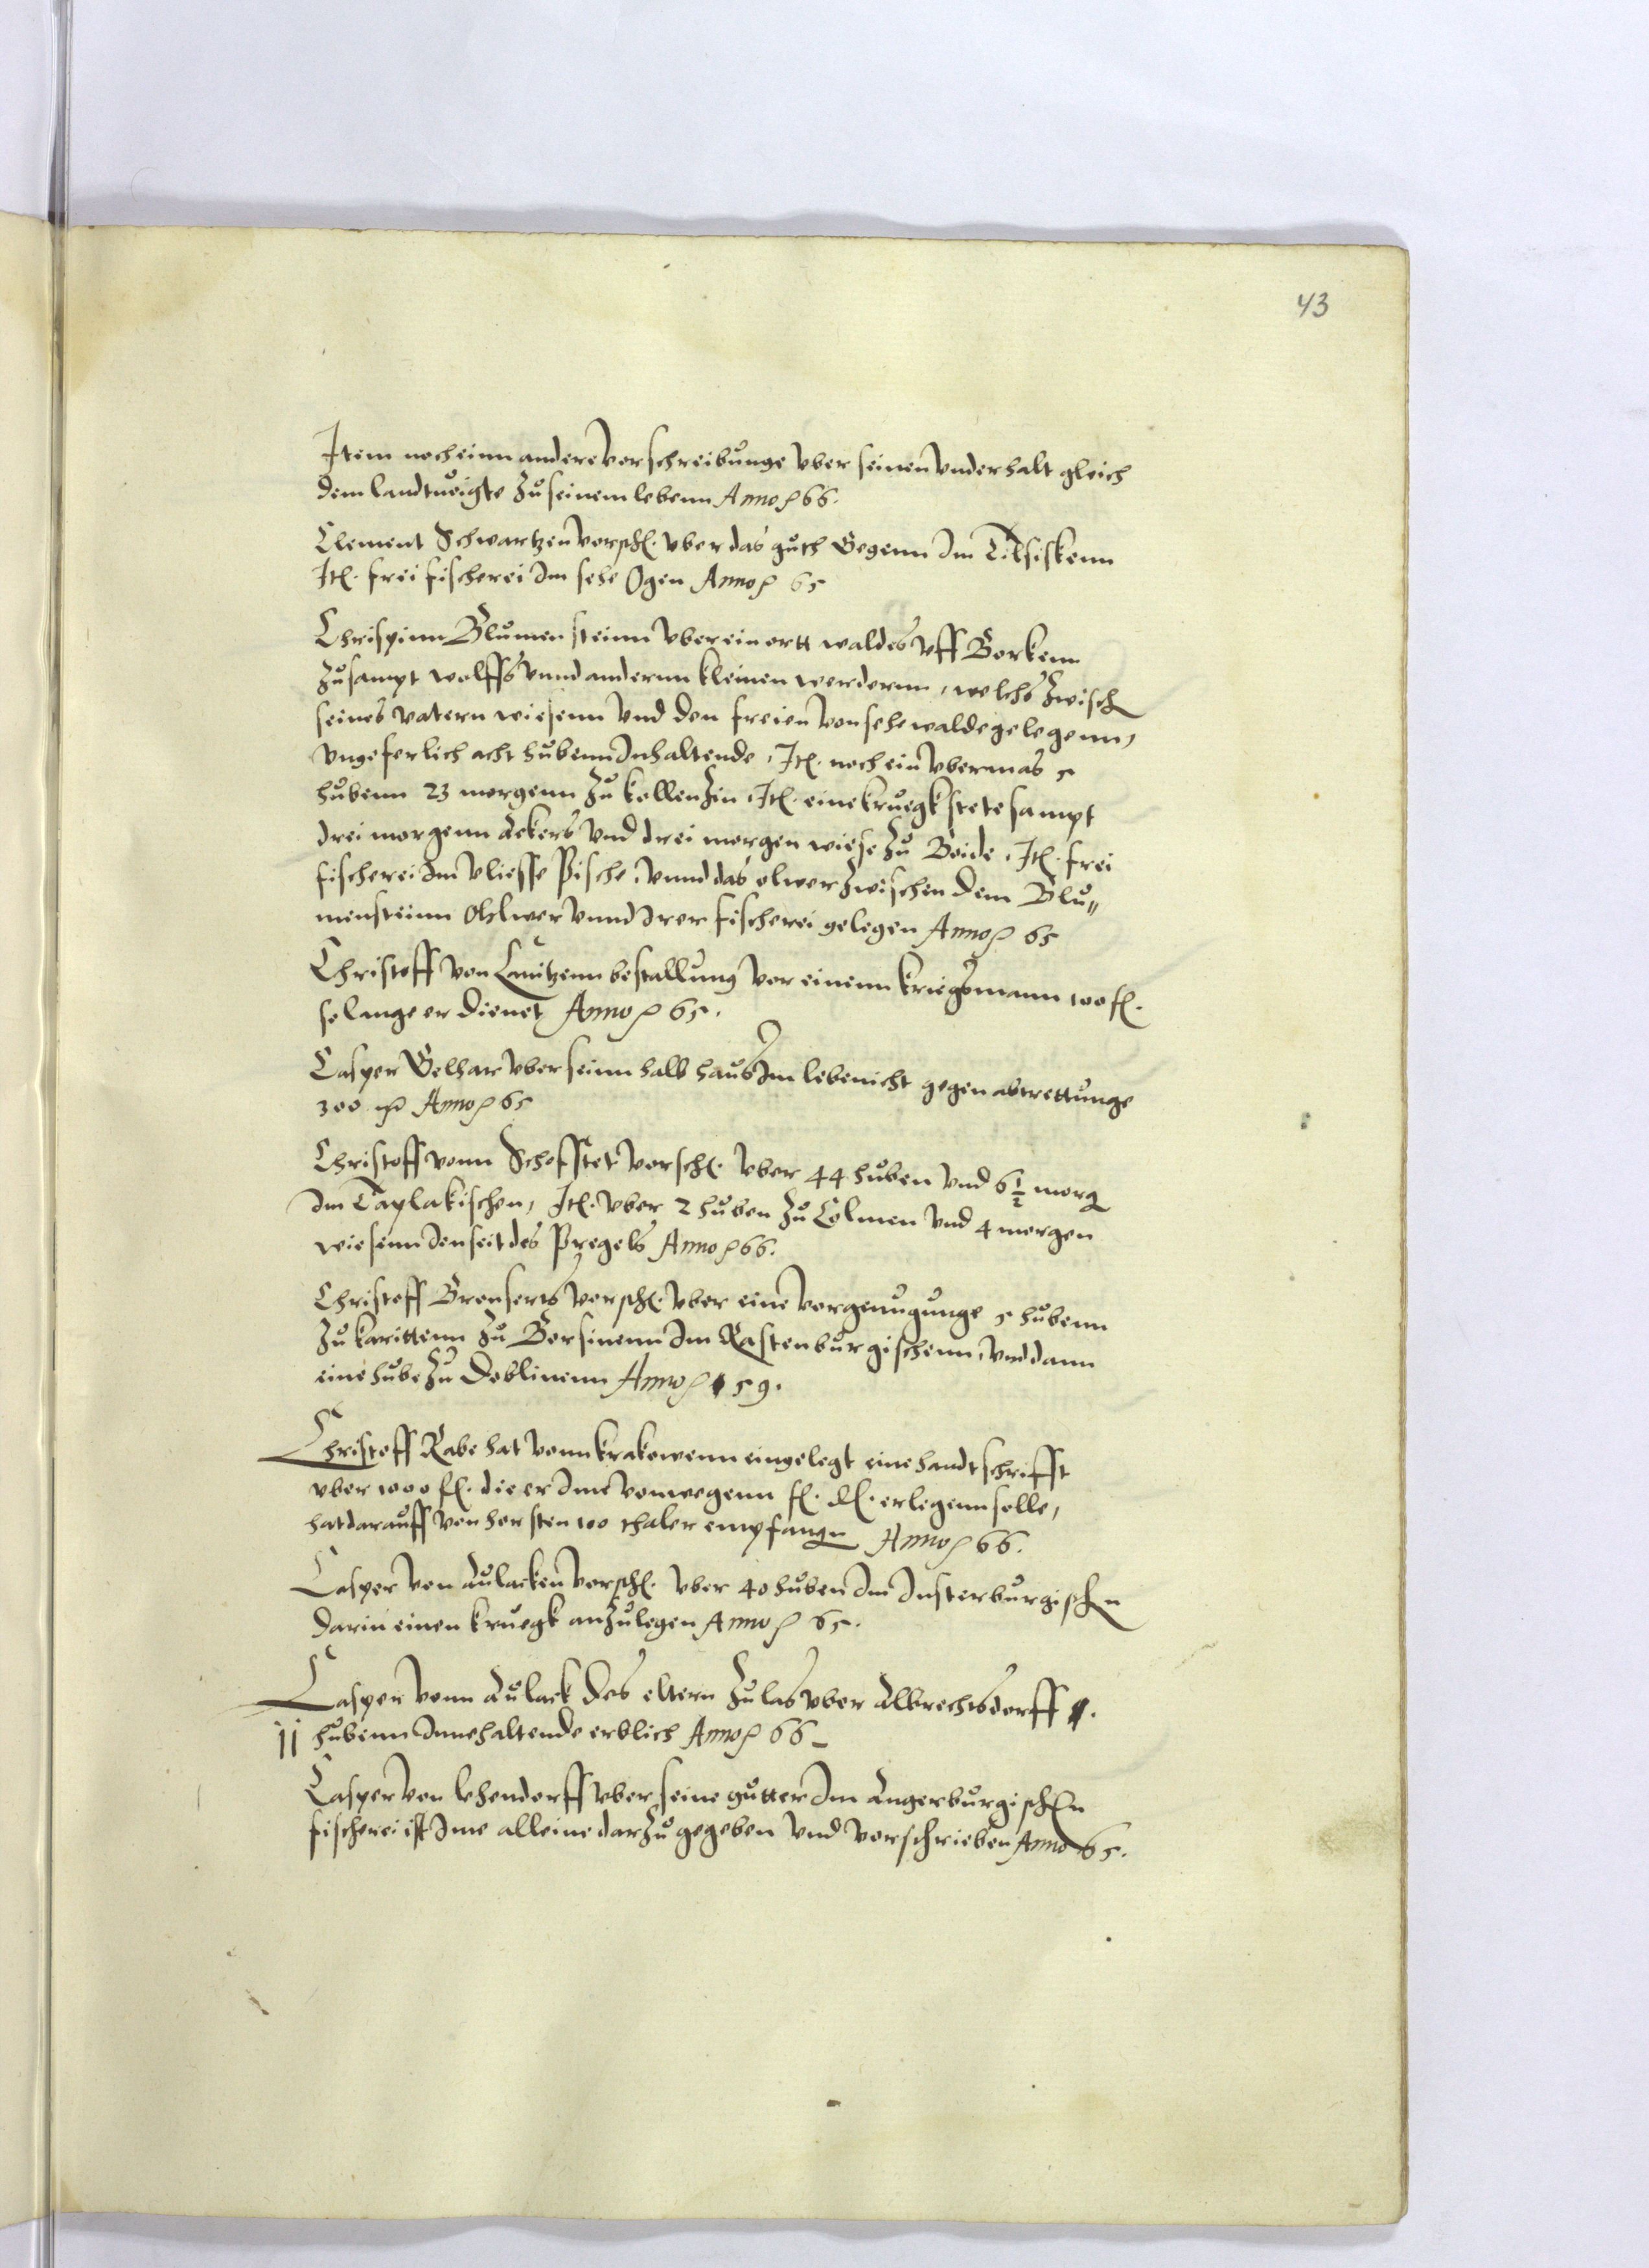 43
Item noch einn andere vorschreibunge vber seinen vnderhalt gleich
dem landtuoigte zu seinem lebenn Anno ꝛc 66.
Clement Schwartzen vorschꝭ. vber das guth Gegenn Im Tilsiskenn
Itꝭ. frei fischerei Im sehe Ogen Anno ꝛc 65
Chrispinn Blumensteinn vber ein ortt waldes vff Borkenn
zusampt wolffs vnnd andernn kleinen werdernn, welchs zwisch
seines vatern wiesenn vnd den freien von sehewalde gelegenn,
vngeferlich acht hubenn Inhaltende, Itꝭ. noch ein vbermas 5
hubenn 23 morgenn zu kollenzin, Itꝭ. eine kruegkstete sampt
drei morgenn Ackers vnd drei morgen wiese zu Boide, Itꝭ. frei
fischerei Im vliesse Pische, vnnd das olwer zwischen dem Blu„
mensteinn Ohlwer vnnd Irer fischerei gelegen Anno ꝛc 65
Christoff von Cautzenn bestallung vor einenn kriegsmann 100 fꝭ.
solange er dienet Anno ꝛc 65.
Casper Gelhar vber seinn halb haus Im lebenicht gegen abtrettunge
300 mꝛ Anno ꝛc 65
Christoff vonn Schofstet vorschꝭ. vber 44 huben vnd 6 ½ morg
Im Taplakischen, Itꝭ. vber 2 huben zu Colmen vnd 4 morgen
wiesenn Jenseit des Pregels Anno ꝛc 66.
Christoff Bronserts vorschꝭ. vber eine vorgenugunge 5 hubenn
zu karittenn zu Borsinenn Im Rastenburgischenn, vnd dann
eine hube zu Doblinenn Anno ꝛc 59.
Christoff Rabe hat vonn krakowenn eingelegt eine handtschrifft
vber 1000 fꝭ. die er Ime vonwegenn fꝭ. dꝭ. erlegenn solle,
hat darauff von hersten 100 thaler empfangn Anno ꝛc 66.
Casper von Aulacken vorschꝭ. vber 40 huben Im Insterburgischen
darin einen kruegk anzulegen Anno ꝛc 65.
Casper vonn Aulack des eltern zulas vber Albrechtsdorff
11 hubenn Innehaltende erblich Anno ꝛc 66
Casper von lehendorff vber seine gutter Im Angerburgischen
fischerei ist Ime alleine darzu gegeben vnd vorschrieben Anno 65.